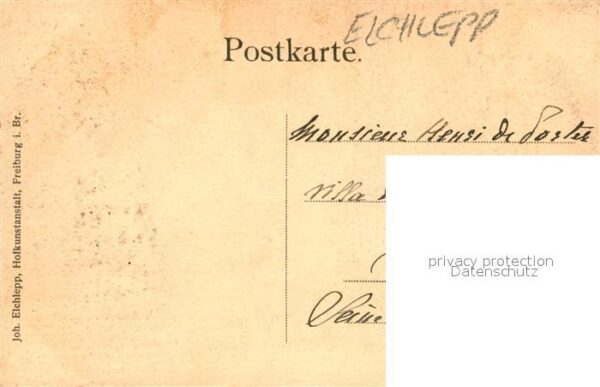 ELCHLEPP
Postkarte.
Joh. Elchlepp, Hofkunstanstalt, Freiburg i. Br.
Monsieur Henri de
Villa
Seine
privacy protection
Datenschutz